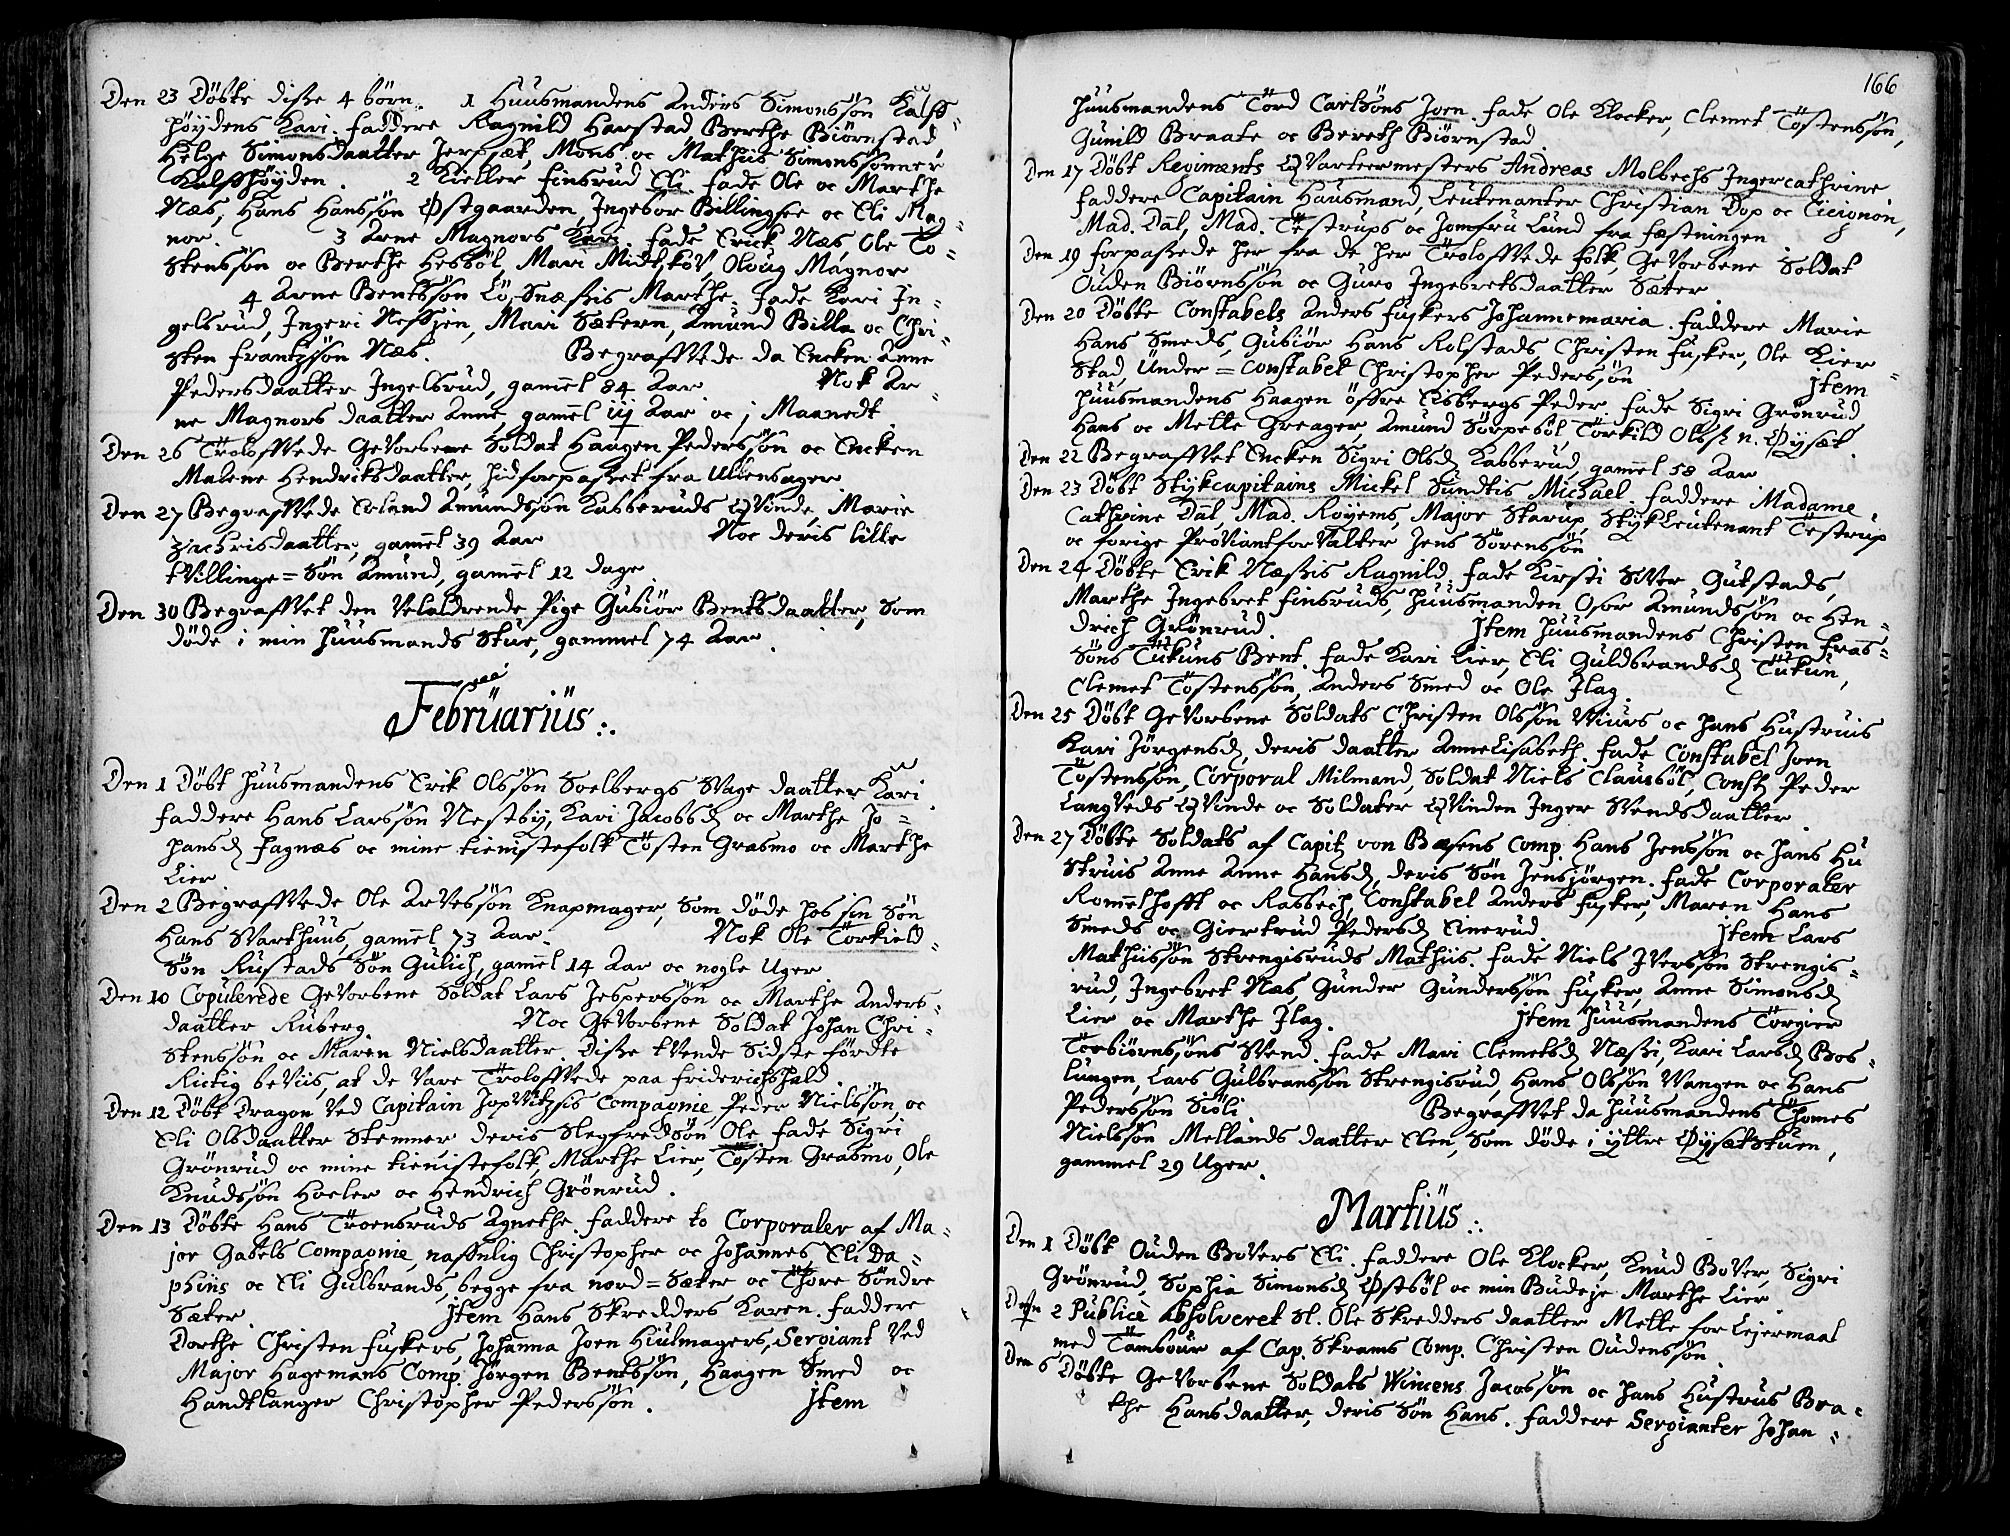 Den 23 Döbte disse 4 börn. 1 Huusmandens Anders Simonssön Kalss=
höydens Kari. faddere Ragnild Harstad, Berthe Biörnstad
Helge Simonsdaatter Jerpset, Mons oc Mathis Simonssönner
Kalsshöyden. 2 Kieller finsrud Eli. fade Ole oc Marthe
Næs, Hans Hanssön Østgaarden, Ingebor Billingsee oc Eli Mag=
nor. 3 Arne Magnors Kari. fade Erick Næs, Ole To=
stenssön oc Berthe Hesböl, Mari Midtskov, Oloug Magnor
4 Arne Bentssön Lö, Snæssis Marthe. fade Kari In=
gelsrud, Ingeri Nessien, Mari Sætern, Amund Billa oc Chri=
sten frantzsön Næs. Begraffvede da Encken Anne
Pedersdaatter Ingelsrud, gamel 84 Aar Nok Ar=
ne Magnors daatter Anne, gamel iij Aar oc j Maanedt
Den 26 Troloffvede Gevorbene Soldat Haagen Pederssön oc Encken
Malene Hendriksdaatter, hidforpasset fra Ullensager.
Den 27 Begraffvede Erland Amundssön Kabberuds Qvinde, Marie
Zachrisdaatter, gamel 39 Aar Noc deris lille
tvillinge=Sön Amund, gamel 12 dage
Den 30 Begraffvet den velaldrende Pige Gubiör Bentsdaatter, som
döde i min huusmands Stue, gammel 74 Aar.
Februarius:.
Den 1 Döbt huusmandens Erik Olssön Soelbergs Svage daatter Kari.
faddere Hans Larssön Nestby, Kari Jacobsd oc Marthe Jo=
hansd fagnæs oc mine tienistefolk Tösten Grasmo oc Marthe
Lier
Den 2 Begraffvede Ole Arvessön Knapmager, som döde hos sin Sön
Hans Svarthuus, gamel 73 Aar. Nok Ole Torkield=
Sön Rustads Sön Gulich, gamel 14 Aar oc nogle Uger
Den 10 Copulerede Gevorbene Soldat Lars Jesperssön oc Marthe Anders=
daatter Ruberg. Noc Gevorbene Soldat Johan Chri=
stenssön oc Maren Nielsdaatter. Disse tvende sidste fördte
Rictig beviis, at de vare Troloffvede paa friderichshald.
Den 12 Döbt Dragon ved Capitain Jopvitzsis Compagnie Peder Nielssön, oc
Eli Olsdaatter Stemner deris Slegfredsön Ole. fade Sigri
Grönrud oc mine tienistefolk, Marthe Lier, Tösten Grasmo, Ole
Knudssön Hoeler oc Hendrich Grönrud.
Den 13 Döbte Hans Troensruds Agnethe. faddere to Corporaler af Ma=
jor Gabels Compagnie, naffnlig Christopher oc Johannes Eli Da=
phiis oc Eli Gulbrands, begge fra nord=Sæter oc Thore Söndre
Sæter. Jtem Hans Skredders Karen. faddere
Dorthe Christen fuskers, Johanna Joen Hiulmagers, Sergiant ved
Major Hagemans Comp. Jörgen Bentssön, Haagen Smed oc
Handtlanger Christopher Pederssön. Jtem
166
huusmandens Törd Carlsöns Joen. fade Ole Klocker, Clemet Töstenssön,
Gunild Braate oc Bereth Biörnstad
Den 17 Döbt Regiments Qvarteermesters Andreas Molbechs Ingercathrine
faddere Capitain Hausmand, Leutenanter Christian Dop oc Cicignon,
Mad. Dal, Mad. Testrups oc Jomfru Lund fra fæstningen
Den 19 forpassede her fra de her Troloffvede folk, Gevorbene Soldat
Ouden Biörnssön oc Guro Ingebretsdaatter Sæter
Den 20 Döbte Constabels Anders fuskers Johannemaria. faddere Marie
Hans Smeds, Gubiör Hans Rolstads, Christen fusker, Ole Kier=
stad, Under=Constabel Christopher Pederssön Jtem
huusmandens Haagen öfvre Eksbergs Peder. fade Sigri Grönrud
Hans oc Mette Greager, Amund Sörpeböl, Törkild Olss n. Øysæt.
Den 22 Begraffvet Encken Sigri Olsd Kabberud, gamel 58 Aar
Den 23 Döbt Stykcapitains Mickel Sundtis Michael. faddere Madame
Cathrine Dal, Mad. Royems, Major Starup, StykLeutenant Testrup
oc forige Proviantforvalter Jens Sörenssön
Den 24 Döbte Erik Næssis Ragnild. fade Kirsti Siver Gutstads,
Marthe Ingebret finsruds, huusmanden Osor Amundssön oc Hen=
drich Grönrud. Jtem huusmandens Christen frans=
söns Tukuns Bent. fade Kari Lier, Eli Guldbrandsd Tukun,
Clemet Töstenssön, Anders Smed oc Ole Flag.
Den 25 Döbt Gevorbene Soldats Christen Olssön Viiurs oc hans hustruis
Kari Jörgensd, deris daatter Annelisabeth. fade Constabel Joen
Töstenssön, Corporal Milmand, Soldat Niels Clausböl, Const Peder
Langveds Qvinde oc Soldater Qvinden Inger Svendsdaatter
Den 27 Döbte Soldats af Capit von Basens Comp. Hans Jenssön oc hans hu
struis Anne Anne Hansd, deris Sön Jensjörgen. fade Corporaler
Rommelhofft oc Rabbech, Constabel Anders fusker, Maren Hans
Smeds oc Giertrud Pedersd Einerud. Jtem Lars
Mathissön Strengisruds Mathis. fade Niels Iverssön Strengis=
rud, Ingebret Næs, Gunder Gunderssön fusker, Anne Simonsd
Lier oc Marthe Flag. Jtem huusmandens Törgier
Torbiörnssöns Svend. fade Mari Clemetsd Næssi, Kari Larsd Bos=
lungen, Lars Gulbranssön Strengisrud, Hans Olssön Vangen oc Hans
Pederssön Siöli Begraffvet da huusmandens Thomes
Nielssön Mellands daatter Elen, som döde i yttre Øysætstuen,
gammel 29 Uger.
Martius:.
Den 1 Döbt Ouden Bovers Eli. fadde Ole Klocker, Knud Bover, Sigri
Grönrud, Sophia Simonsd Østböl oc min Budeje Marthe Lier
Den 2 Publicè absolveret Sl. Ole Skredders daatter Mette for Lejermaal
med Tambour af Cap. Skrams Comp. Christen Oudenssön.
Den 6 Döbte Gevorbene Soldats Wincens Jacobssön oc hans hustrus Bra=
the Hansdaatter, deris Sön Hans. faddere Sergianter Johan=